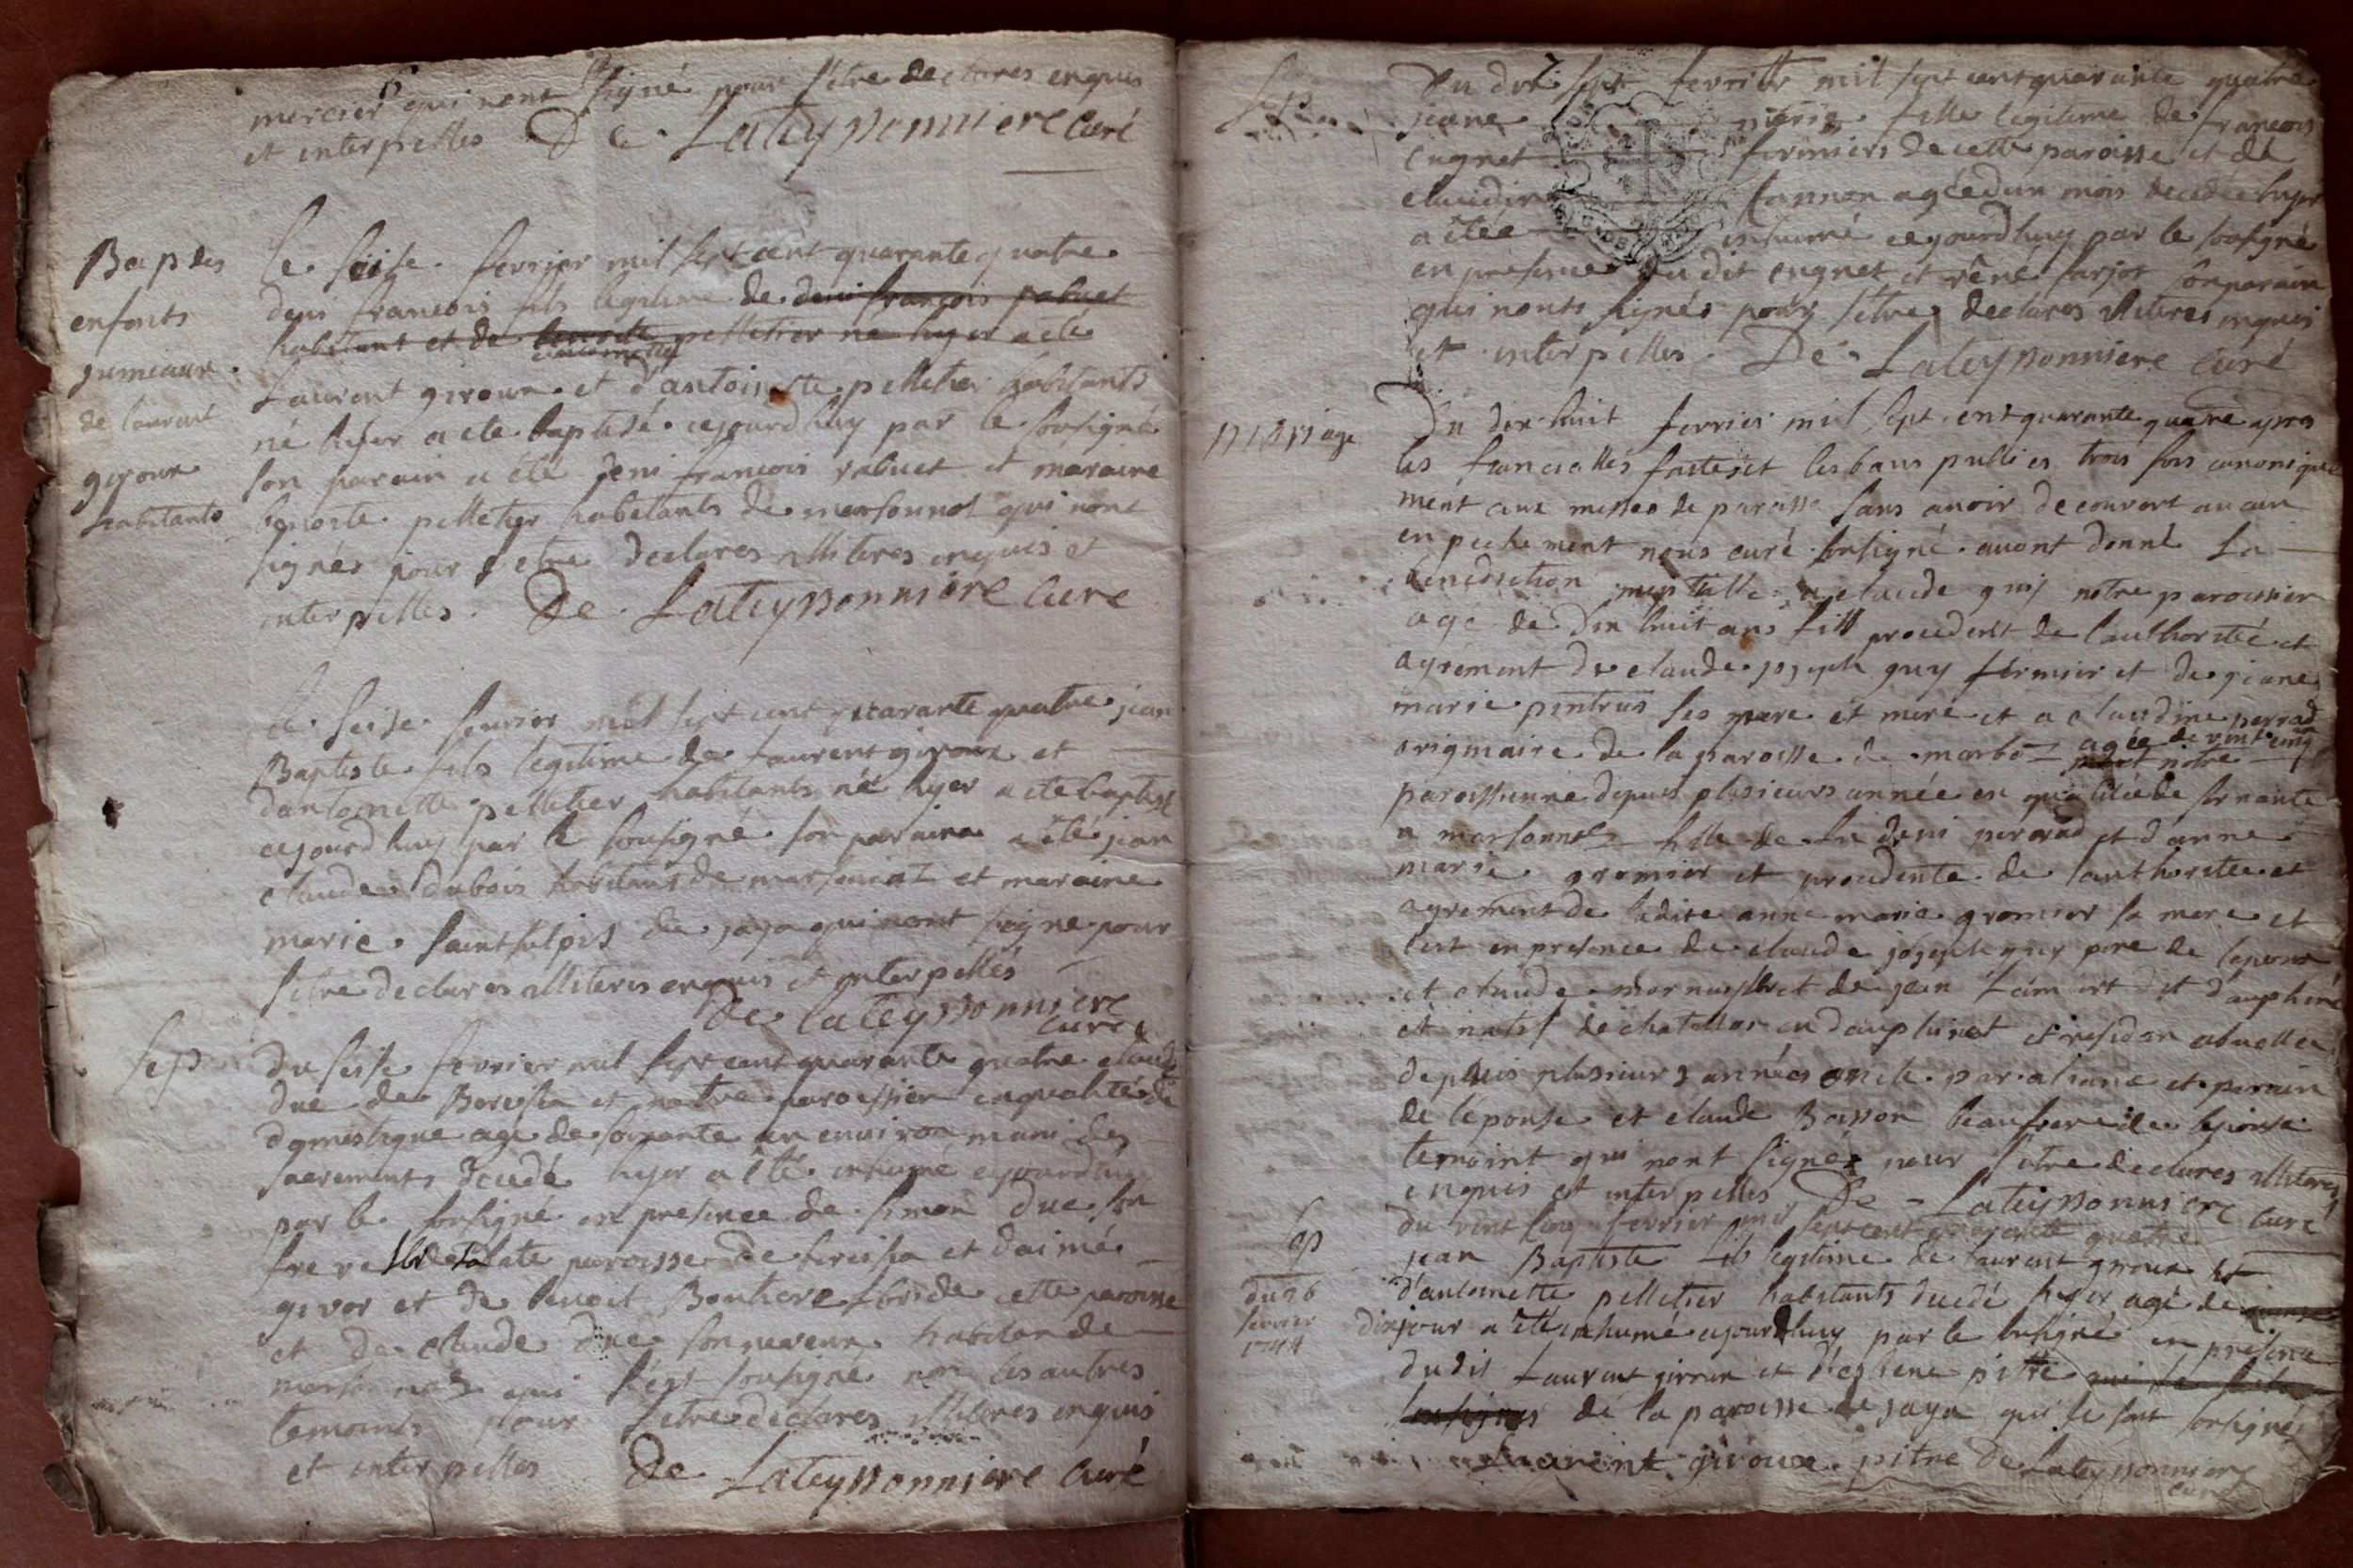 mercier qui nont signé pour s'être declares enquis
et interpelles De Lateyssonniere Curé
Bap des
enfants
gumeaux
de laurant
giroux
habitants
Le seise fevrier mil sept cent quarante quatre
deni francois fils legitime de deni francois rabuet
habitant et de benoite pelletier né hyer a ete
Laurent giroux et d'antoinette pelletier habitants
né hyer a ete baptisé cejourdhuy par le sousigné
son parain a été deni francois rabuet et maraine
benoite pelletier habitants de marsonnat qui nont
signés pour s'etre declares illiteres enquis et
interpelles. De Lateyssonniere Curé
Le seise fevrier mil sept cent quarante quatre jean
Baptiste fils legitime de Laurent giroux et
dantoinette pelletier habitants né hyer a ete baptisé
cejourdhuy par le sousigné son paraina a été jean
claude dubois habitans de marsonnat et maraine
marie saint sulpis de jaya qui nont signe pour
s'etre declares illiteres enquis et interpellés
De lateyssonniere
curé
Sep
du seise fevrier mil sept cent quarante quatre claude
duc de Bereisia et notre paroissien en qualité de
domestique agé de soixante an environ muni des
sacrements decedé hyer a été inhumé cejourdhuy
par le sousigné en presence de simon duc son
frere de la dite paroisse de bereisia et daimé
givor et de benoit Bonhore de cette paroisse
et de claude duc son neveux habitan de
marsonnas qui s'est sousigné non les autres
temoints pour s'etre declares illiteres enquis
et interpelles De Lateyssonniere Curé
Sep
Du dix sept fevrier mil sept cent quarante quatre
jeane marie fille legitime de francois
cugnet fermiers de cette paroisse et de
claudine agée dun mois decedée hyer
a étée inhumé cejourdhuy par le sousigné
en presence du dit cugnet et réné farjot son parain
qui nonts signés pour s'etre declares illiteres enquis
et interpelles. De Lateyssonniere Curé
Mariage
Du dix huit fevrier mil sept cent quarante quatre apres
les fiancialles faites et les bans publies trois fois canonique
ment aux messes de paroisse sans avoir decouvert aucun
enpechement nous curé sousigné avont donné la
benediction nuptialle a claude guy notre paroissien
agé de dix huit ans fils procedent de lauthorité et
agrement de claude joseph guy fermier et de jeane
marie pintrus ses pere et mere et a claudine perrad
originaire de la paroisse de marbo agée de vint cinq
notre
paroissienne depuis plusieurs année en qualité de servante
a marsonnas fille de feu deni perrad et d'anne
marie gromier et procedente de lauthoritee et
agrement de ladite anne marie gromier sa mere et
cest en presence de claude joseph guy pere de lepoux
et claude et de jean dit dauphiné
et natif de chatillar en dauphinet et residan
depuis plusieurs années oncle par aliance et parain
de lepouse et claude Basson beaufrere de lepouse
temoint qui nont signés pour s'etre declares illiteres
enquis et interpelles De Lateyssonniere Curé
Sep
du 26
fevrier
1744
du vint fevrier mil sept cent quarante quatre
jean Baptiste fils legitime de laurent giroux et
d'antoinette pelletier habitants decedé hyer agé de
dix jour a été inhumé cejourdhuy par le sousigné en presence
dudit Laurent giroux et d'estiene pitre qui se
sousignes de la paroisse de jaya qui se sont sousignés
Laurent giroux pitre De Lateyssonniere
curé